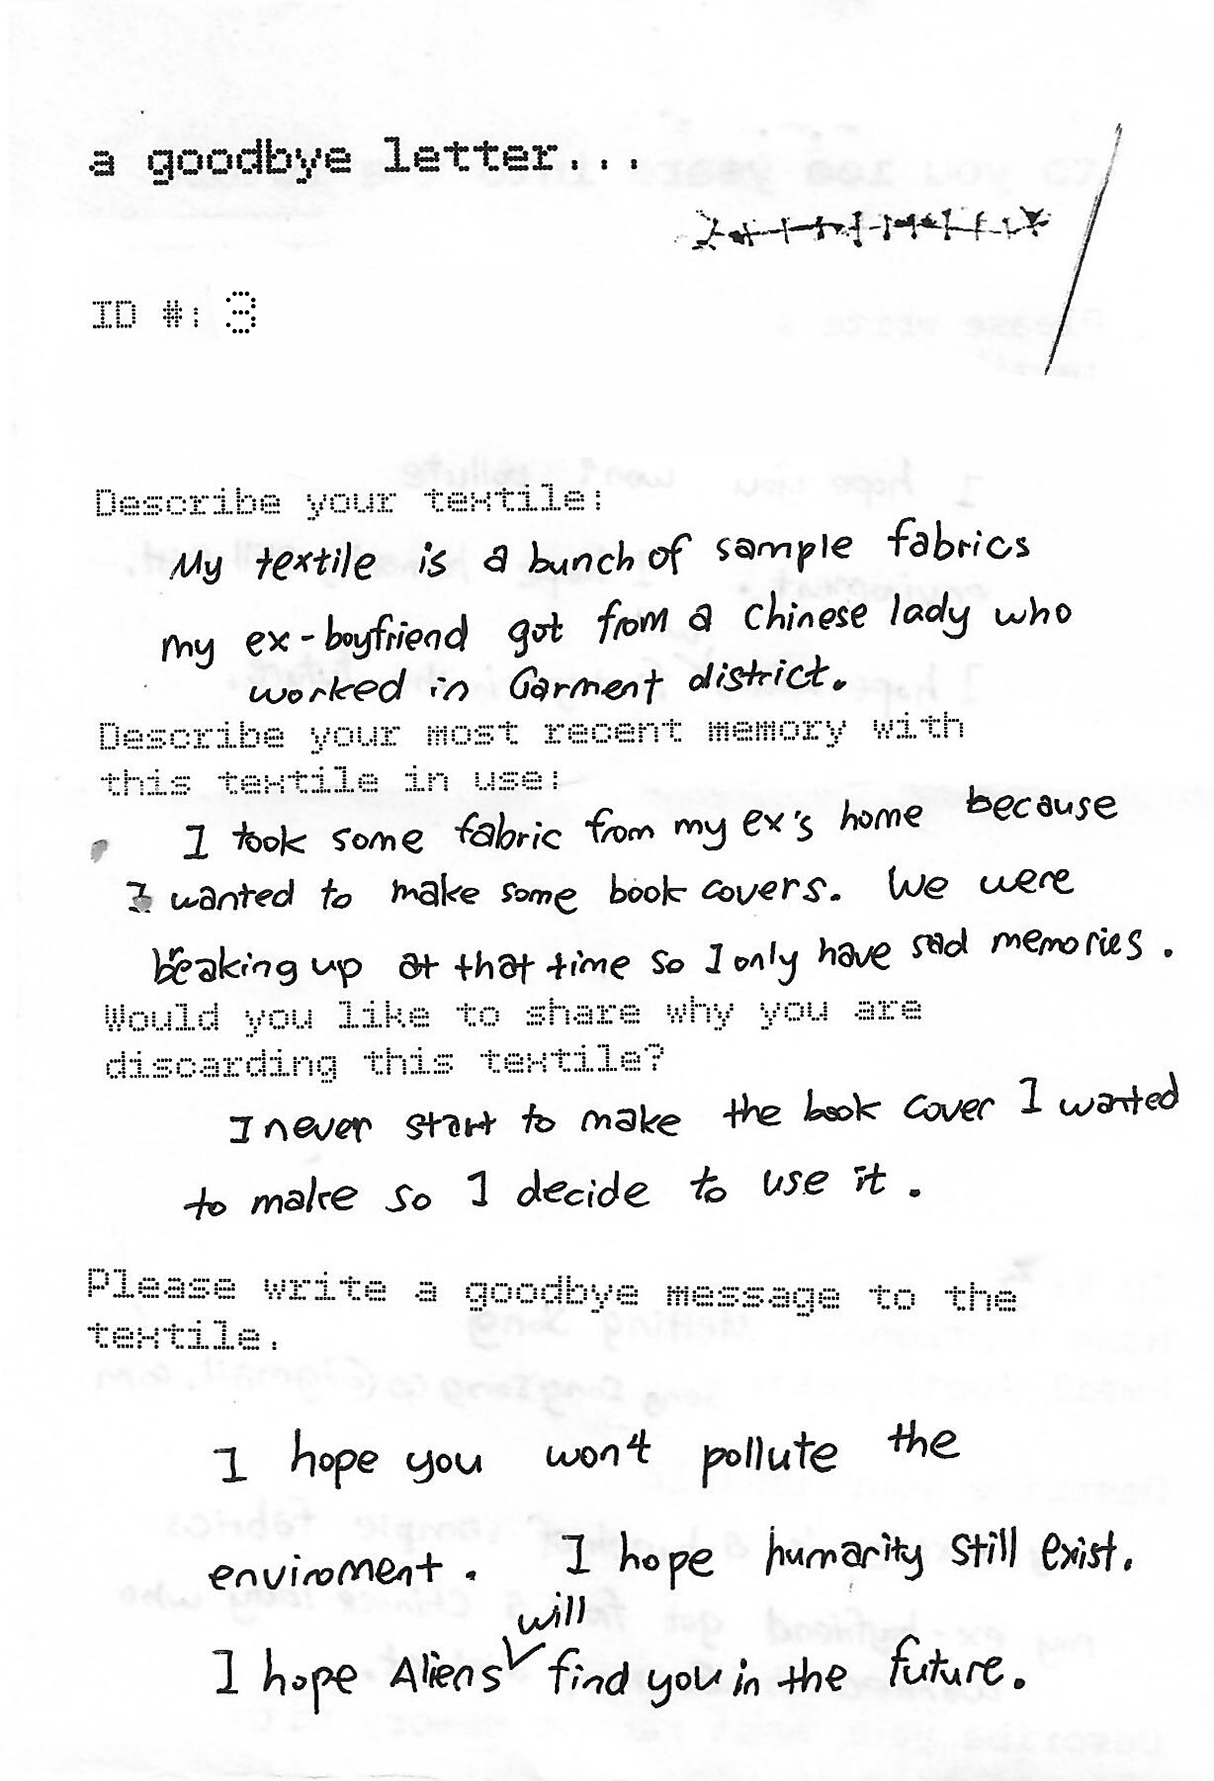 a goodbye letter...
ID #: 3
Describe your textile:
My textile is a bunch of sample fabrics
my ex-boyfriend got from a Chinese lady who
worked in Garment district.
Describe your most recent memory with
this textile in use:
I took some fabric from my ex's home because
I wanted to make some book covers. We were
breaking up at that time so I only have sad memories.
Would you like to share why you are
discarding this textile?
I never start to make the book cover I wanted
to make so I decide to use it.
Please write a goodbye message to the
textile.
I hope you won't pollute the
enviroment. I hope humanity still exist.
I hope Aliens will find you in the future.